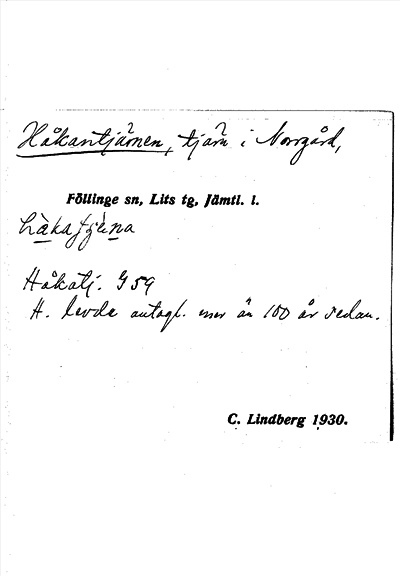 Håkantjärnen, tjärn i Norrgård,
Föllinge sn, Lits tg, Jämtl. l.
Håkatj. G 59
H. levde antagl. mer än 100 år sedan.
C. Lindberg 1930.